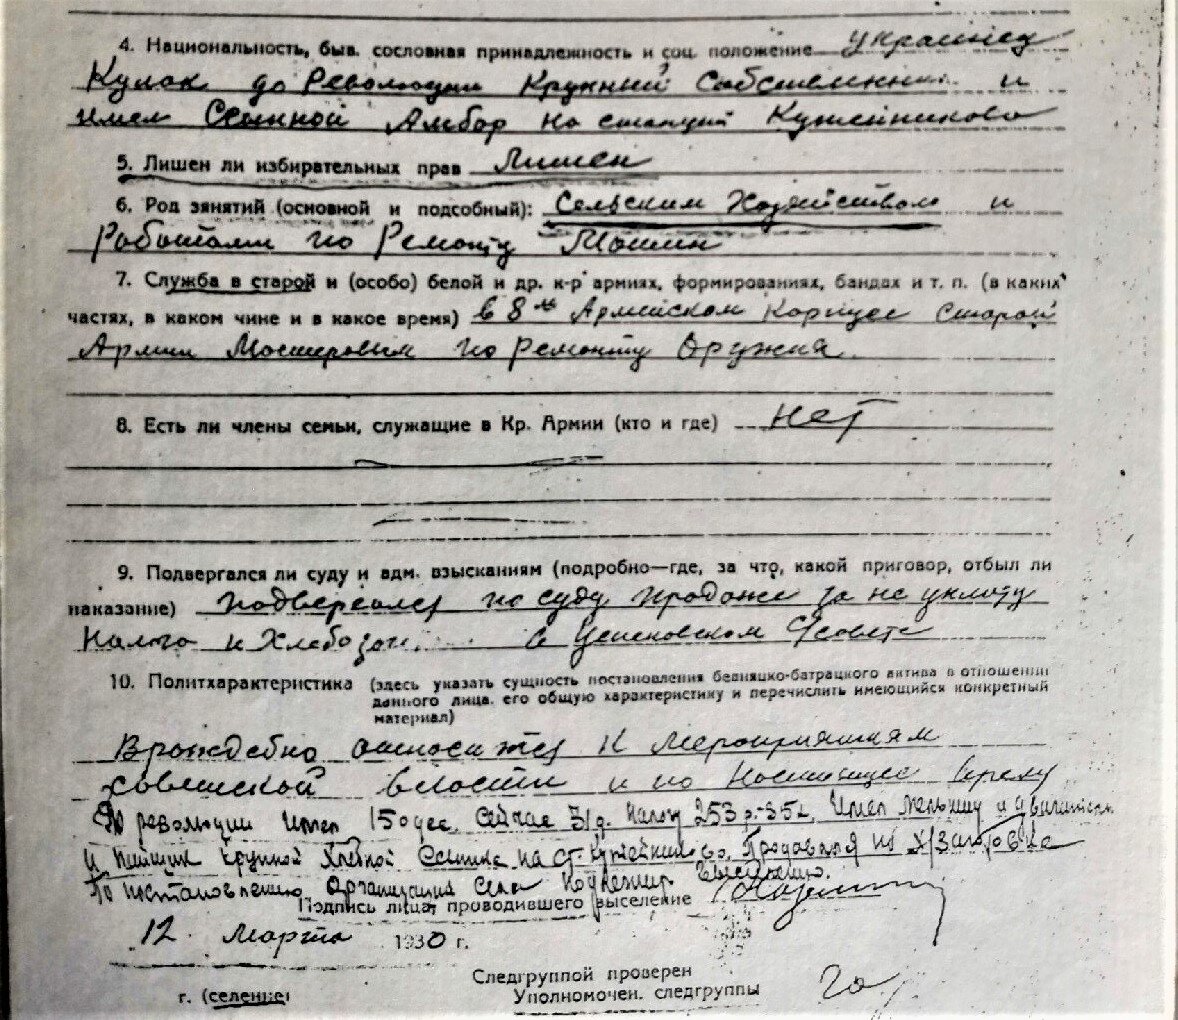 4. Национальность, быв. сословная принадлежность и соц. положение украинец
Кулак до Революции Крупний Собственник и
имел Ссыпной Амбар на станций Кутейниково
5. Лишен ли избирательных прав Лишен
6. Род занятий (основной и подсобный): Сельским Хозяйством и
Работами по Ремонту Машин
7. Служба в старой и (особо) белой и др. к-р армиях, формированиях, бандах и т. п. (в каких
частях, в каком чине и в какое время) в 8 м Армейском Корпусе Старой
Армии Мастеровым по Ремонту Оружия
8. Есть ли члены семьи, служащие в Кр. Армии (кто и где) нет
9. Подвергался ли суду и адм. взысканиям (подробно—где, за что, какой приговор, отбыл ли
наказание) подвергался по суду продаже за не уплату
Налога и Хлебозаг. в Успеновском С/совете
10. Политхарактеристика (здесь указать сущность постановления бедняцко-батрацкого актива в отношении
данного лица, его общую характеристику и перечислить имеющийся конкретный
материал)
Враждебно относится к мероприятиям
советской власти и по Настоящее время
До революции имел 15 дес. сейчас налог 253 р.-35к. Имел мельницу и двигатель
и пайщик крупной хлебной ссыпки на ст. Кутейниково. Продавался по х/заготовке
По постановлению Организации Села подлежит выселению.
Подпись лица, проводившего выселение
12 Марта 1930 г.
Следгруппой проверен
г. (селение)
Уполномочен. следгруппы